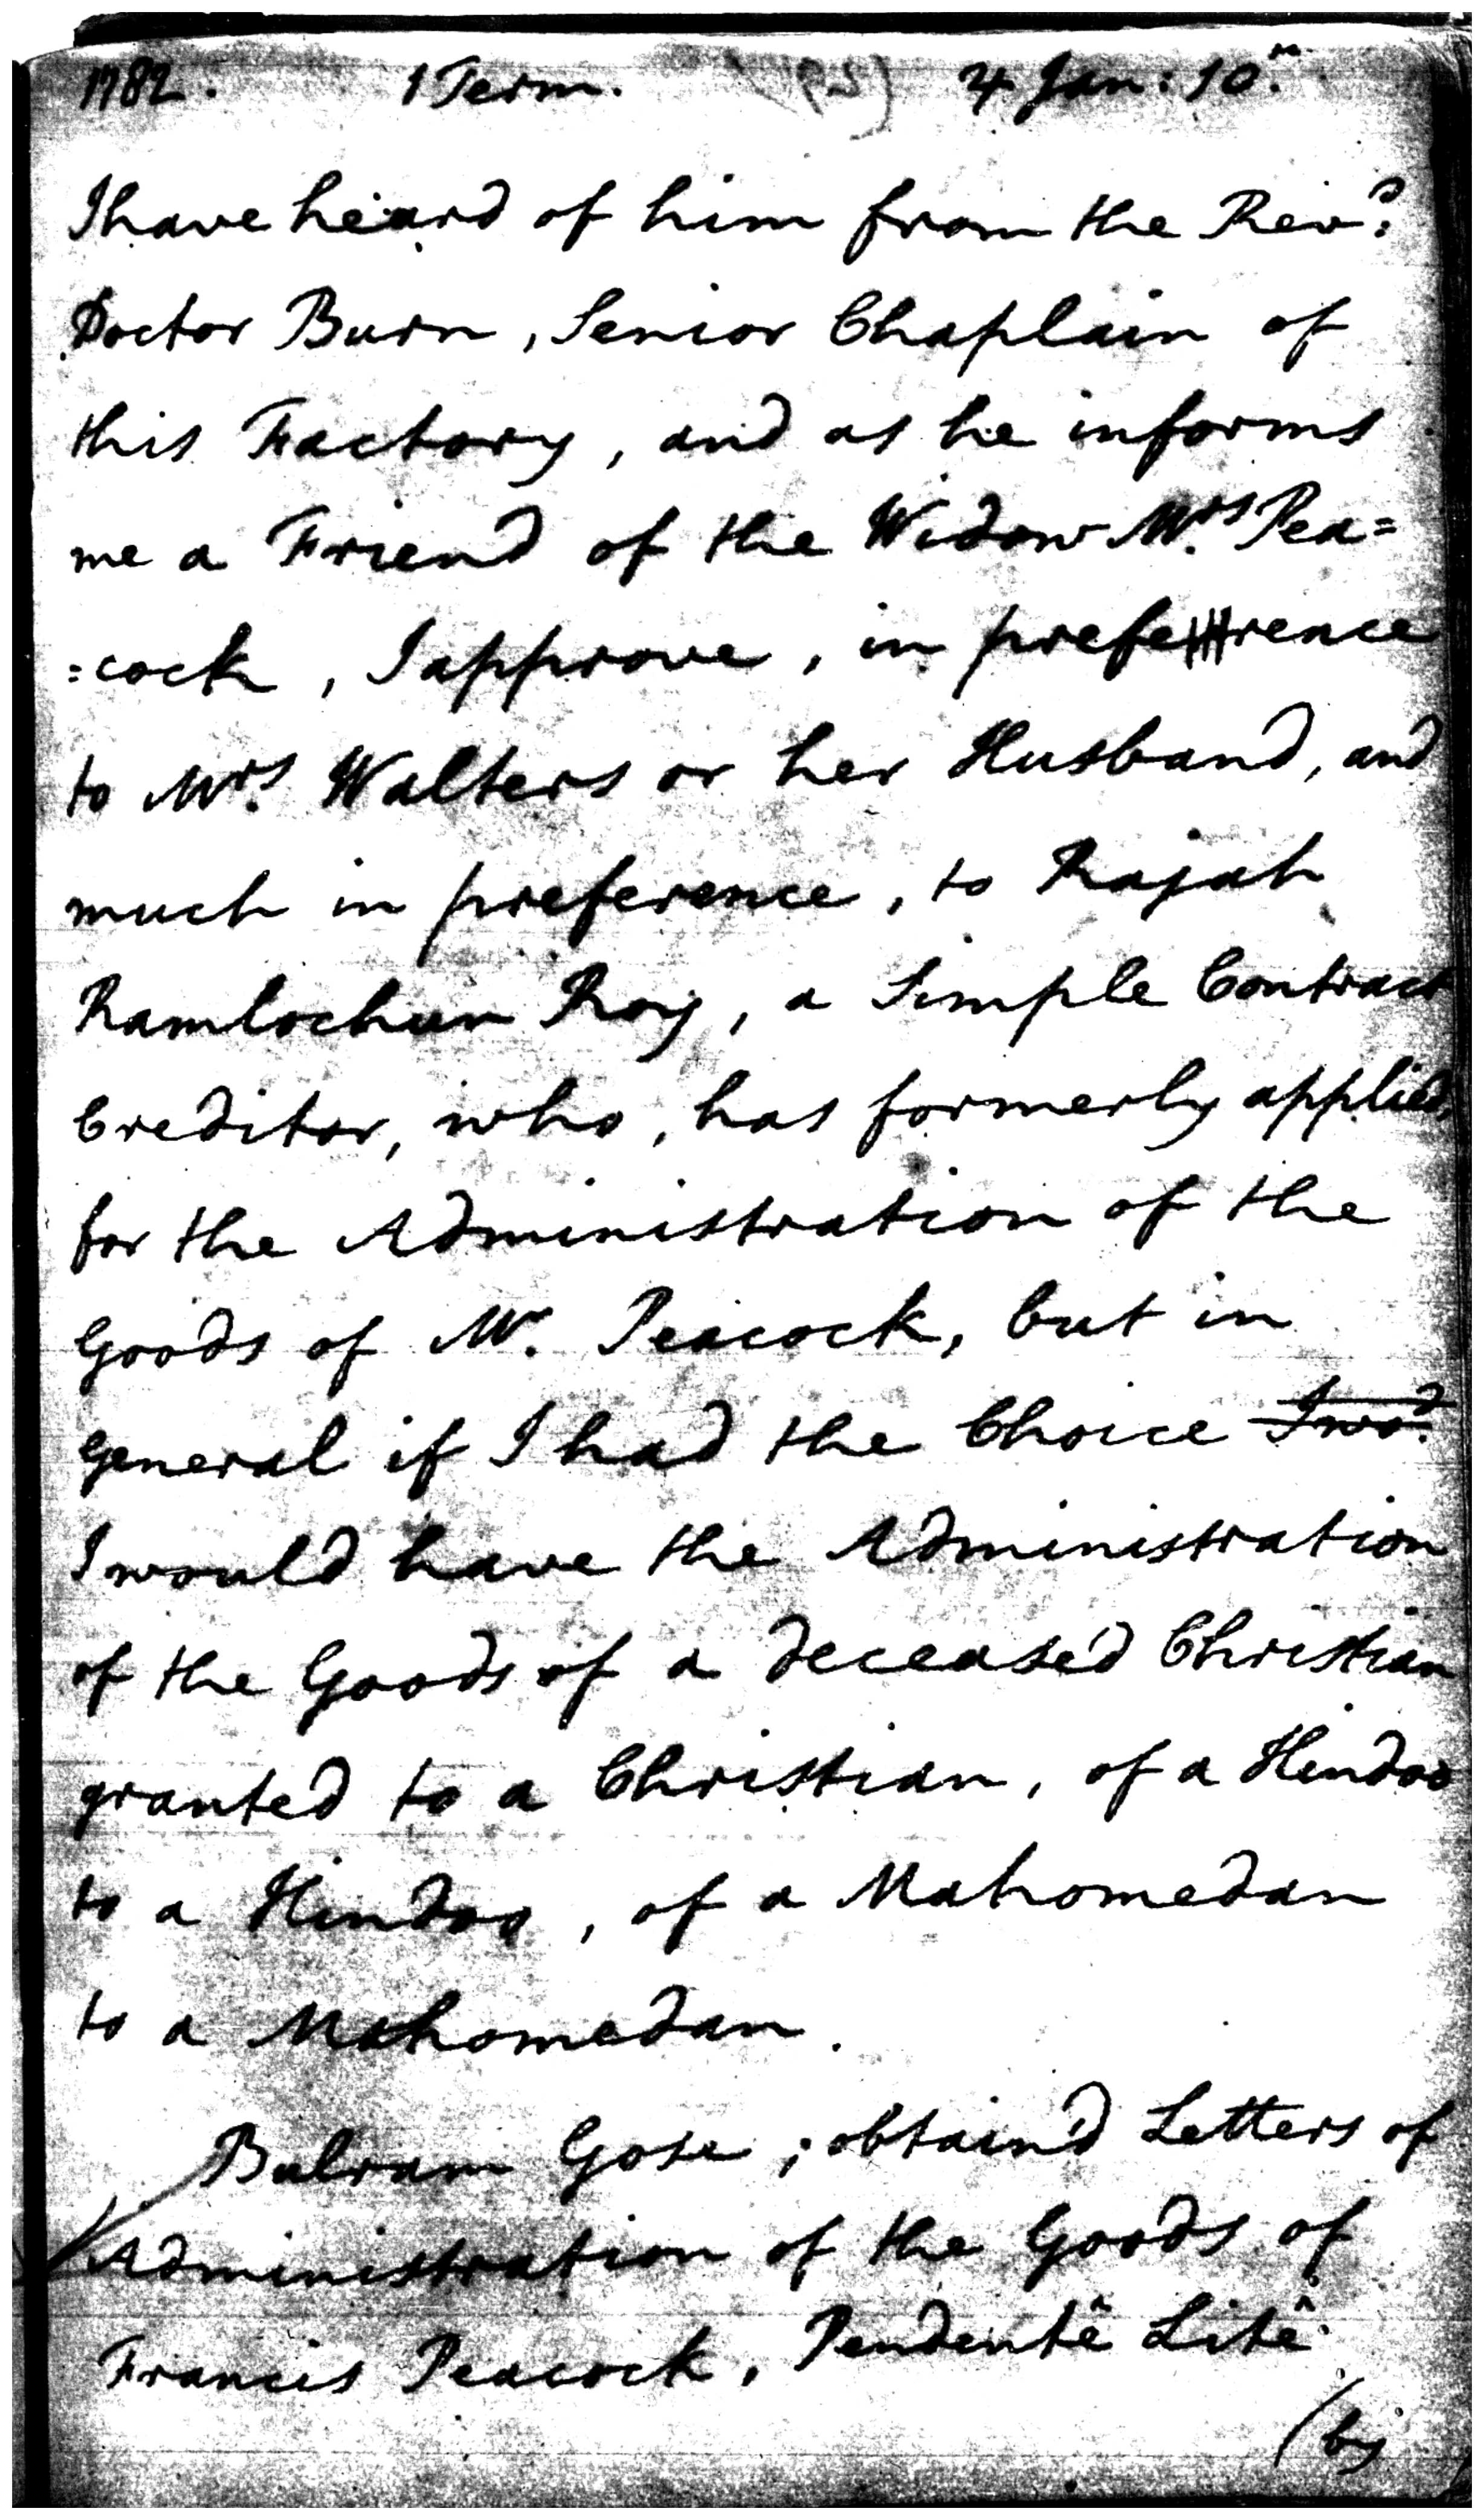 1782. 1 Term. 4 Jan: 10.th
I have heard of him from the Rev.d
Doctor Burn, Senior Chaplain of
this Factory, and as he informs
me a Friend of the Widow Mrs Pea=
=cock, I approve, in preference
to Mrs. Walters or her Husband, and
much in preference, to Rajah
Ramlochun Roy, a Simple Contract
Creditor, who, has formerly applied,
for the Administration of the
Goods of Mr. Peacock, but in
general if I had the Choice I wo.d
I would have the Administration
of the Goods of a decease'd Christian
granted to a Christian, of a Hindoo
to a Hindoo, of a Mahomedan
to a Mahomedan.
Bulram Gose, obtain'd Letters of
Administration of the Goods of
Francis Peacock, Pendentê Litê
(by